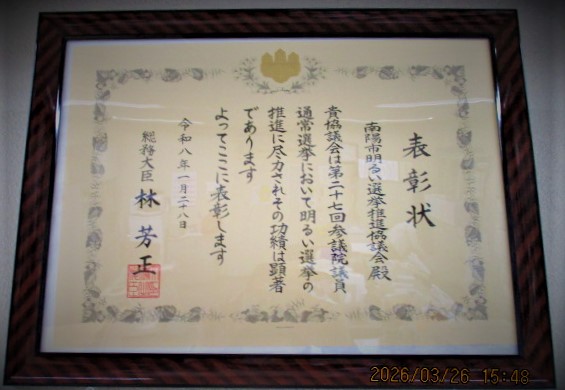 表彰状
南陽市明るい選挙推進協議会殿
貴協議会は第二十七回参議院議員
通常選挙において明るい選挙の
推進に尽力されその功績は顕著
であります
よってここに表彰します
令和八年一月二八日
総務大臣 林芳正
2026/03/26 15:48